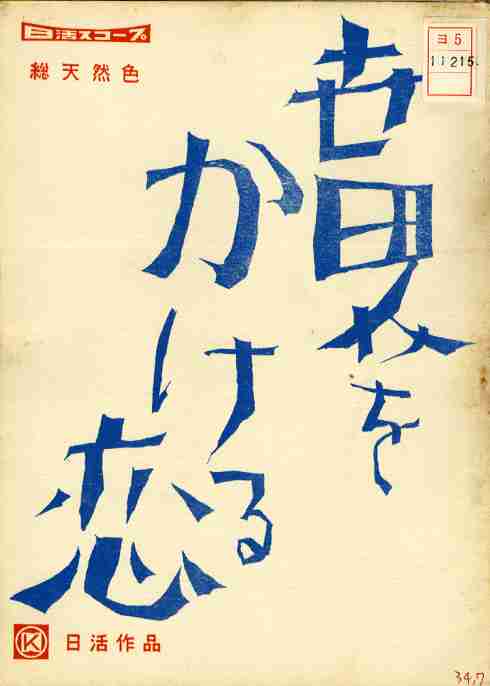 日活スコープ
総天然色
ヨ5
11215.
世界を
かける
恋
日活作品
34.7